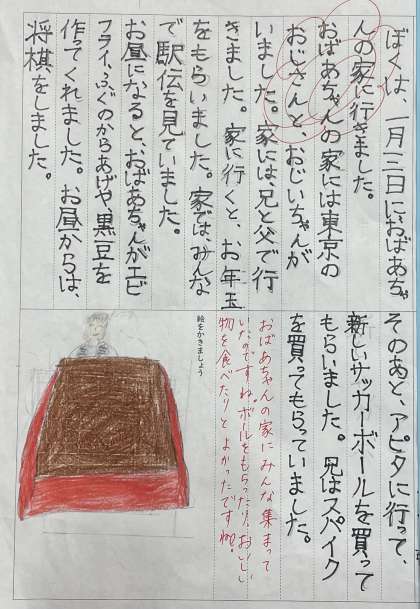 ぼくは、一月三日におばあちゃ
んの家に行きました。
おばあちゃんの家には東京の
おじさんと、おじいちゃんが
いました。家には、兄と父で行
きました。家に行くと、お年玉
をもらいました。家では、みんな
で駅伝を見ていました。
お昼になると、おばあちゃんがエビ
フライ、ふぐのからあげや、黒豆を
作ってくれました。お昼からは、
将棋をしました。
そのあと、アピタに行って、
新しいサッカーボールを買って
もらいました。兄はスパイク
を買ってもらっていました。
おばあちゃんの家にみんな集まって
いたのですね。ボールをもらったり、おいしい
物を食べたりとよかったですね。
絵をかきましょう